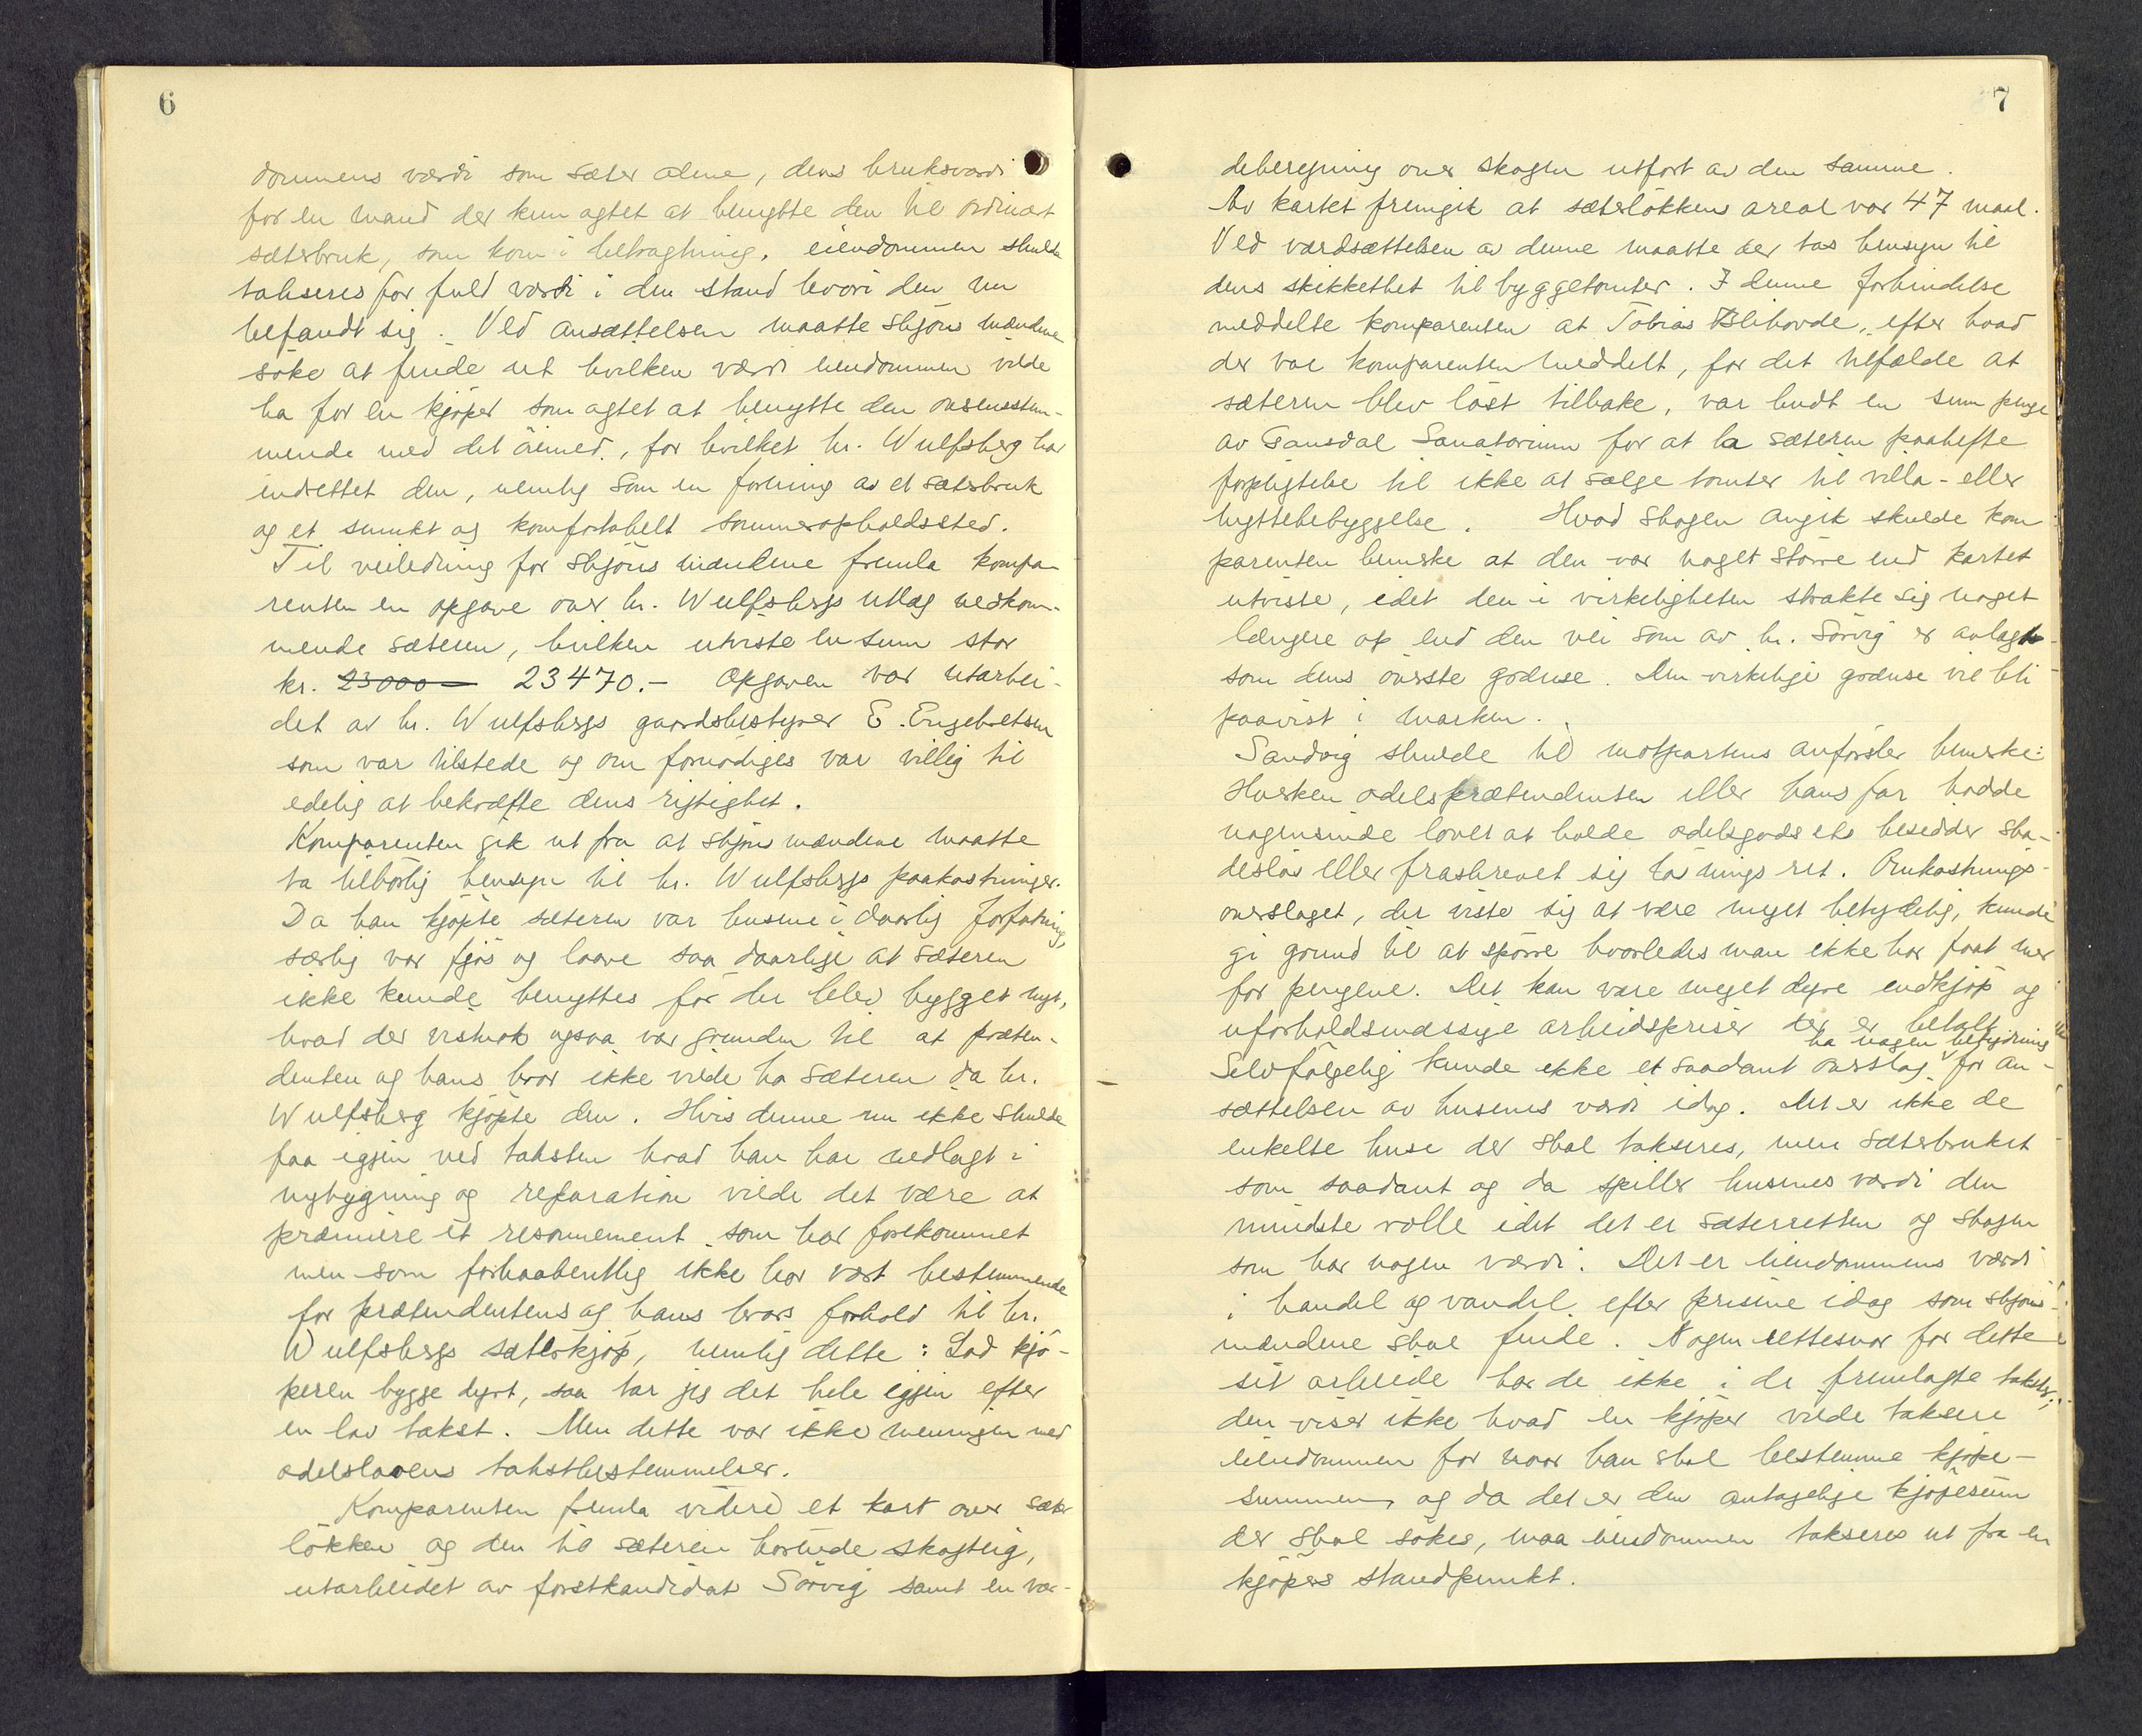 6
dommens værdi som sæter alene, dens bruksværdi
for en mand der kun agtet at benytte den til ordinært
sæterbruk, som kom i betragtning, eiendommen skulde
takseres for fuld værdi i den stand hvori den nu
befandt sig. Ved ansættelsen maatte skjøns mændene
søke at finde ut hvilken værdi eiendommen vilde
ha for en kjøper som agtet at benytte den overensstem-
mende med det øiemed, for hvilket hr. Wulfsberg har
indrettet den, nemlig som en forening av et sæterbruk
og et smukt og komfortabelt sommeropholdssted.
Til veiledning for skjøns mændene fremla kompa-
renten en opgave over hr. Wulfsbergs utlæg vedkom-
mende sæteren, hvilken utviste en sum stor
kr. 23000 23470.- Opgaven var utarbei-
det av hr. Wulfsbergs gaardsbestyrer E. Engebretsen
som var tilstede og om fornødiges var villig til
edelig at bekræfte dens rigtighet.
Komparenten gik ut fra at skjøns mændene maatte
ta tilbørlig hensyn til hr. Wulfsbergs paakostninger.
Da han kjøpte sæteren var husene i daarlig forfatning,
særlig var fjøs og laave saa daarlige at sæteren
ikke kunde benyttes før der blev bygget nyt,
hvad der vistnok ogsaa var grunden til at præten-
denten og hans bror ikke vilde ha sæteren da hr.
Wulfsberg kjøpte den. Hvis denne nu ikke skulde
faa igjen ved taksten hvad han har nedlagt i
nybygning og reparation vilde det være at
præmiere et resonnement som har forekommet
men som forhaabentlig ikke har vært bestemmende
for prætendentens og hans brors forhold til hr.
Wulfsbergs sæterkjøp, nemlig dette: Lad kjø-
peren bygge dyrt, saa tar jeg det hele igjen efter
en lav takst. Men dette var ikke meningen med
odelslovens takstbestemmelser.
Komparenten fremla videre et kart over sæter
løkken og den til sæteren hørende skogteig,
utarbeidet av forstkandidat Sörvig samt en vær-
7
deberegning over skogen utført av den samme.
Av kartet fremgik at sæterløkkens areal var 47 maal.
Ved værdsættelsen av denne maatte der tas hensyn til
dens skikkethet til byggetomter. I denne forbindelse
meddelte komparenten at Tobias Blihovde, efter hvad
der var komparenten meddelt, for det tilfælde at
sæteren blev løst tilbake, var budt en sum penge
av Gausdal Sanatorium for at la sæteren paahefte
forpligtelse til ikke at sælge tomter til villa- eller
hyttebebyggelse. Hvad skogen angik skulde kom
parenten bemerke at den var noget større end kartet
utviste, idet den i virkeligheten strakte sig noget
længere op end den vei som av hr. Sörvig er avlagt
som dens øverste grænse. Den virkelige grænse vil bli
paavist i marken.
Sandvig skulde til motpartens anførsler bemerke:
Hverken odelsprætendenten eller hans far hadde
nogensinde lovet at holde odelsgodsets besidder ska-
desløs eller fraskrevet sig løsningsret. Omkostnings-
overslaget, der viste sig at være meget betydelig, kunde
gi grund til at spørre hvorledes man ikke har faat mer
for pengene. Det kan være meget dyre indkjøp og
uforholdsmæssige arbeidspriser der er betalt.
ha nogen betydning
Selvfølgelig kunde ikke et saadant overslag for an-
sættelsen av husenes værdi idag. Det er ikke de
enkelte huse der skal takseres, men sæterbruket
som saadant og da spiller husenes værdi den
mindste rolle idet det er sæterretten og skogen
som har nogen værdi. Det er eiendommens værdi
i handel og vandel efter prisene idag som skjøns-
mændene skal finde. Nogen rettesnor for dette
sit arbeide har de ikke i de fremlagte takster;
den viser ikke hvad en kjøper vilde taksere
eiendommen for naar han skal bestemme kjøpe-
summen, og da det er den antagelige kjøpesum
der skal søkes, maa eiendommen takseres ut fra en
kjøpers standpunkt.